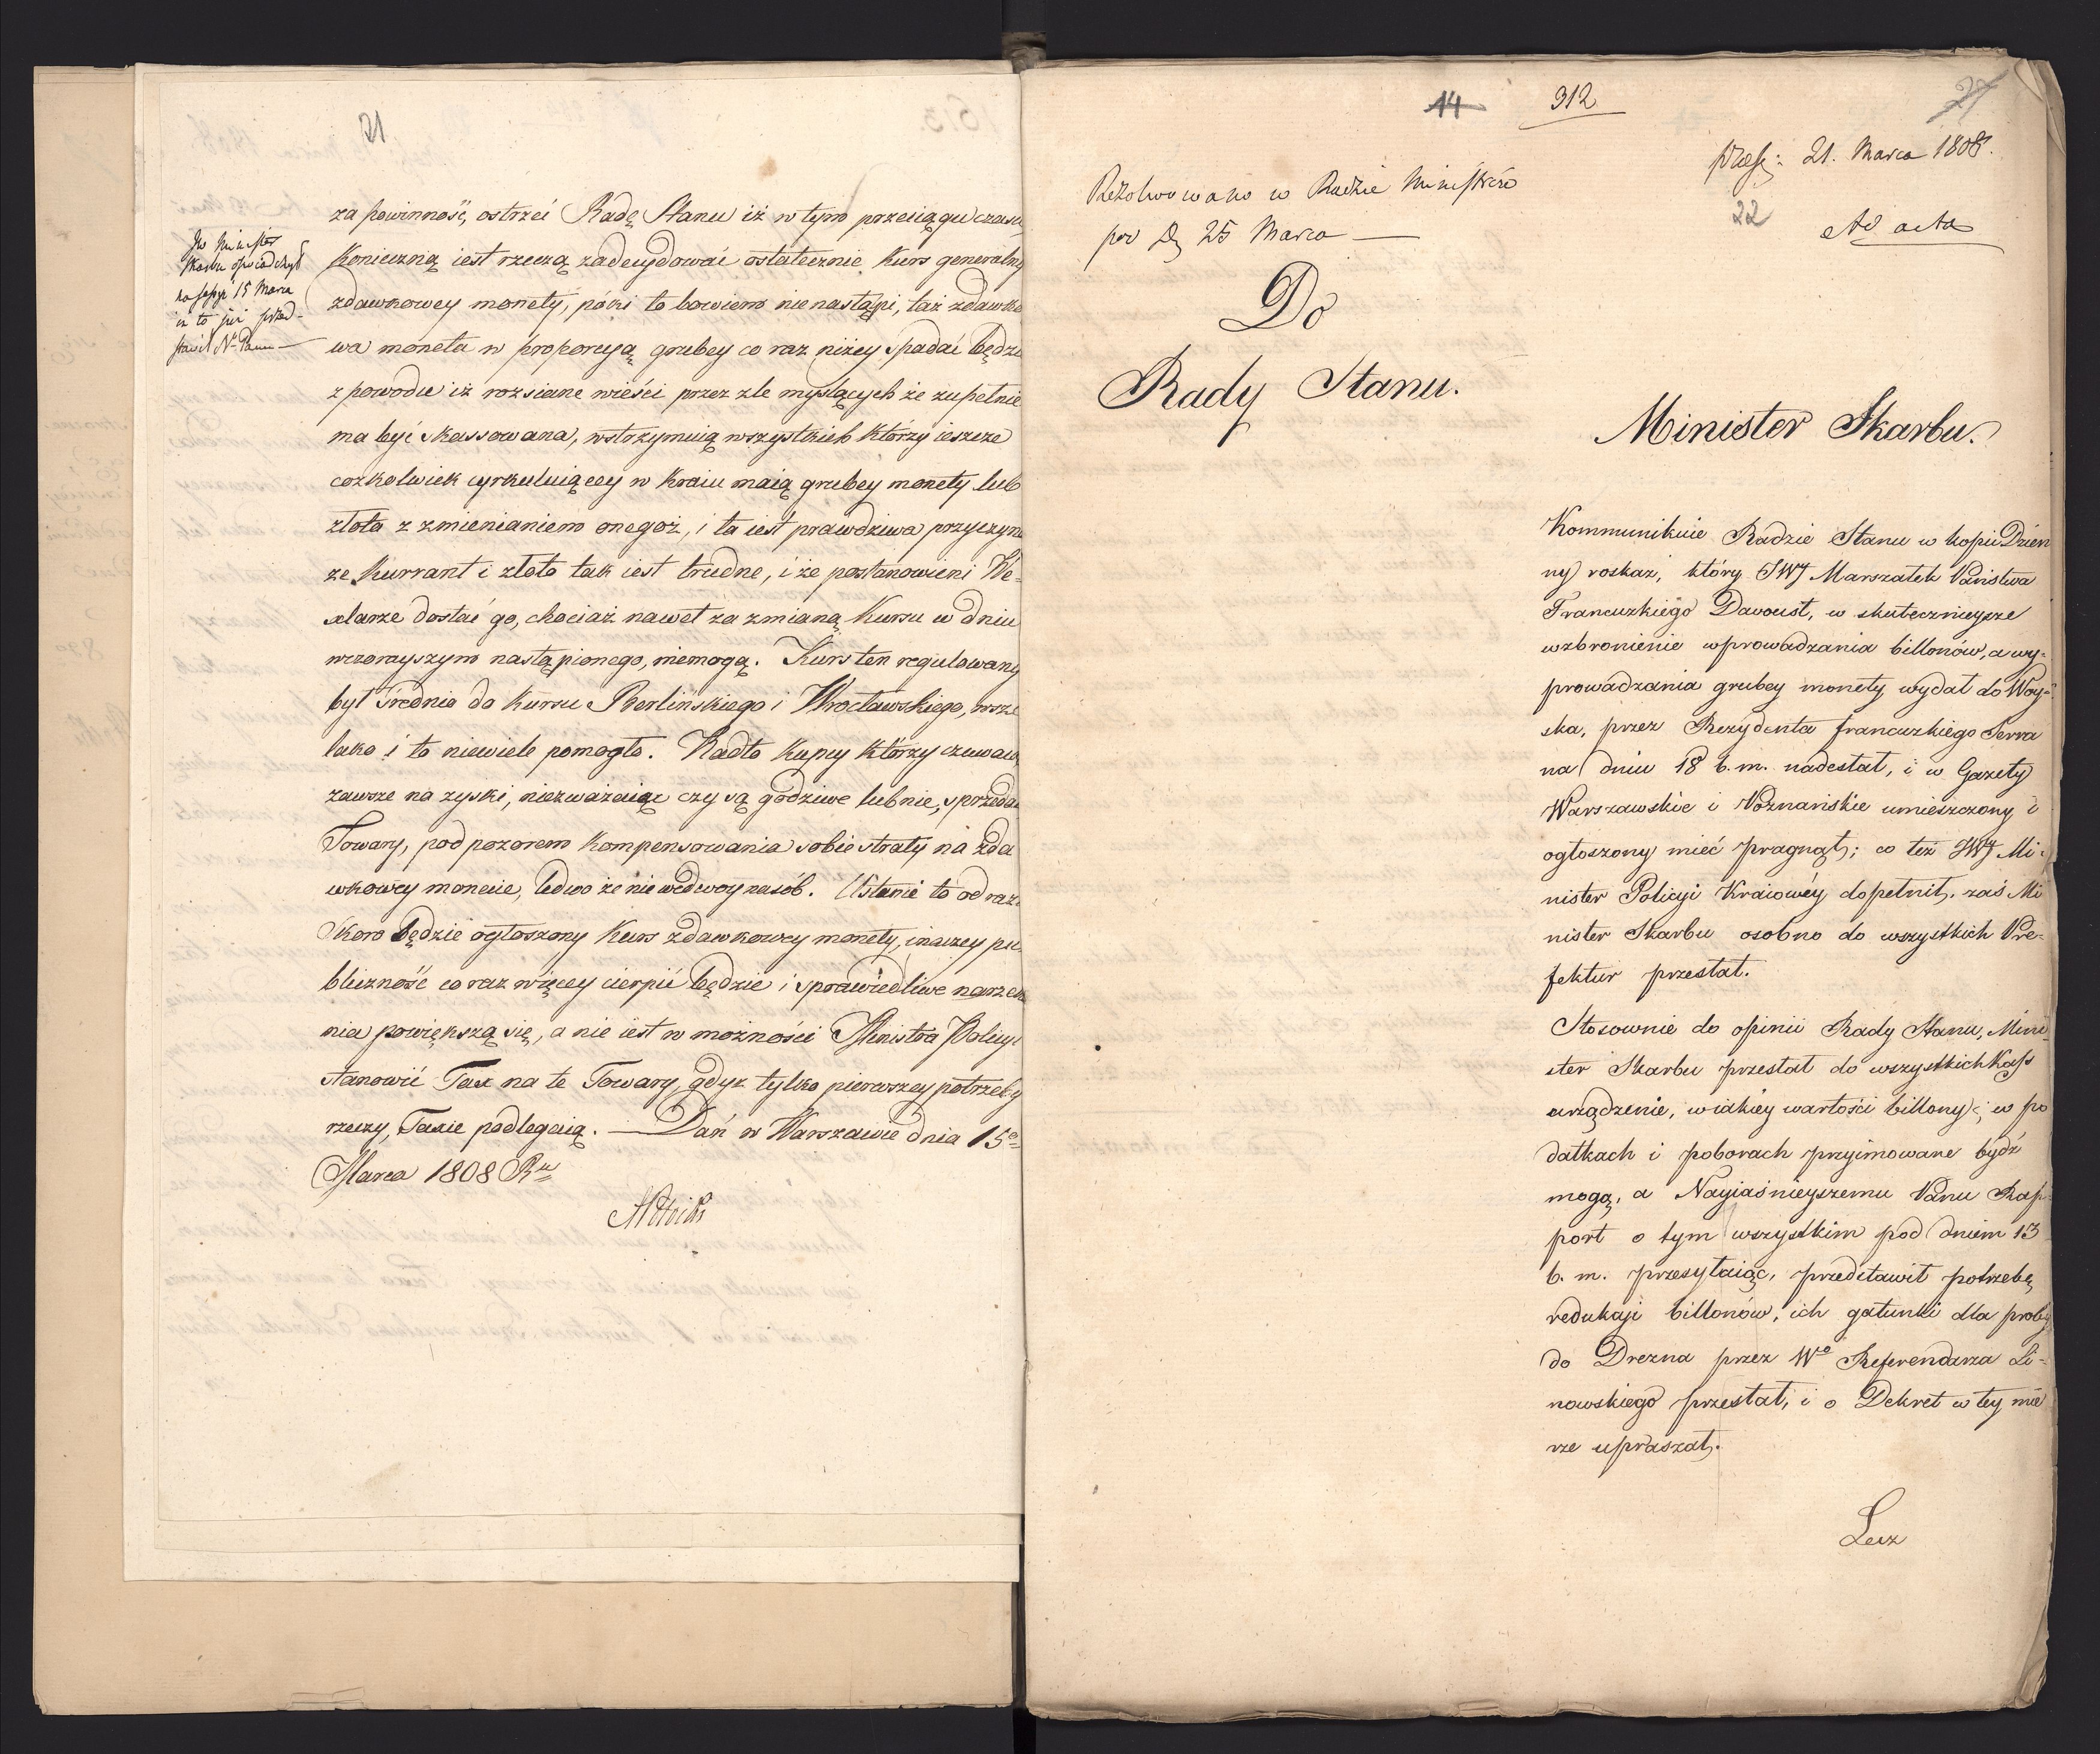 21
JW Minister
Skarbu oświadczył
na sessyi 15 Marca
iż to już przed-
stawił N. Panu —
za powinność, ostrzeć Radę Stanu iż w tym przeciągu czasu
Konieczną iest rzeczą zadecydować ostatecznie Kurs generalny
zdawkowey monety, póki to bowiem nie nastąpi, taż zdawko
wa moneta w proporcyą grubey co raz niżey spadać będzie
z powodu iż rozsiane wieści przez zle myślących że zupełnie
ma być skassowana, wstrzymuią wszystkich którzy ieszcze
cożkolwiek cyrkuluiącey w Kraiu maią grubey monety lub
złota z zmienianiem onegoż, i ta iest prawdziwa przyczyna
że Kurrant i złoto tak iest trudne, i że postanowieni We-
xlarze dostać go, chociaż nawet za zmianą Kursu w dniu
wczorayszym nastąpionego, niemogą. Kurs ten regulowany
był srednio do Kursu Berlińskiego i Wrocławskiego, wsze
lako i to niewiele pomogło. Nadto Kupcy którzy czuwaią
zawsze na zyski, niezważaiąc czy są godziwe lub nie, sprzedaią
Towary, pod pozorem Kompensowania sobie straty na zda
wkowey monecie, ledwo że nie we dwoy nasób. Ustanie to od razu
Skoro będzie ogłoszony Kurs zdawkowey monety, inaczey pu-
bliczność co raz więcey cierpić będzie i sprawiedliwe narzeka
nia powiększą się, a nie iest w możności Ministra Policyi
stanowić Tax na te Towary, gdyż tylko pierwszey potrzeby
rzeczy, Taxie podlegaią. — Dań w Warszawie dnia 15o
Marca 1808 Ru
APotocki
14 312
27
præs: 21. Marca 1808.
22
Ad acta
Rezolwowano w Radzie Ministrów
pod D. 25 Marca —
Do
Rady Stanu.
Minister Skarbu.
Kommunikuie Radzie Stanu w kopii Dzien
ny roskaz, który JWJ Marszałek Państwa
Francuzkiego Davoust, w skutecznieysze
wzbronienie wprowadzania billonów, a wy-
prowadzania grubey monety wydał do Woy-
ska, przez Rezydenta francuzkiego Serra
na dniu 18 b. m. nadesłał, i w Gazety
Warszawskie i Poznańskie umieszczony i
ogłoszony mieć pragnął; co też JWJ Mi-
nister Policyi Kraiowéy dopełnił, zaś Mi
nister Skarbu osobno do wszystkich Pre-
fektur przesłał.
Stosownie do opinii Rady Stanu, Mini-
ster Skarbu przesłał do wszystkich Kass
urządzenie, w iakiéy wartości billony w po
datkach i poborach przyimowane bydź
mogą, a Nayiaśnieyszemu Panu Rap-
port o tym wszystkim pod dniem 13
b. m. przesyłaiąc, przedstawił potrzebę
redukcji billonów, ich gatunki dla proby
do Drezna przez Wo Referendarza Li-
nowskiego przesłał, i o Dekret w tey mie
rze upraszał.
Lecz